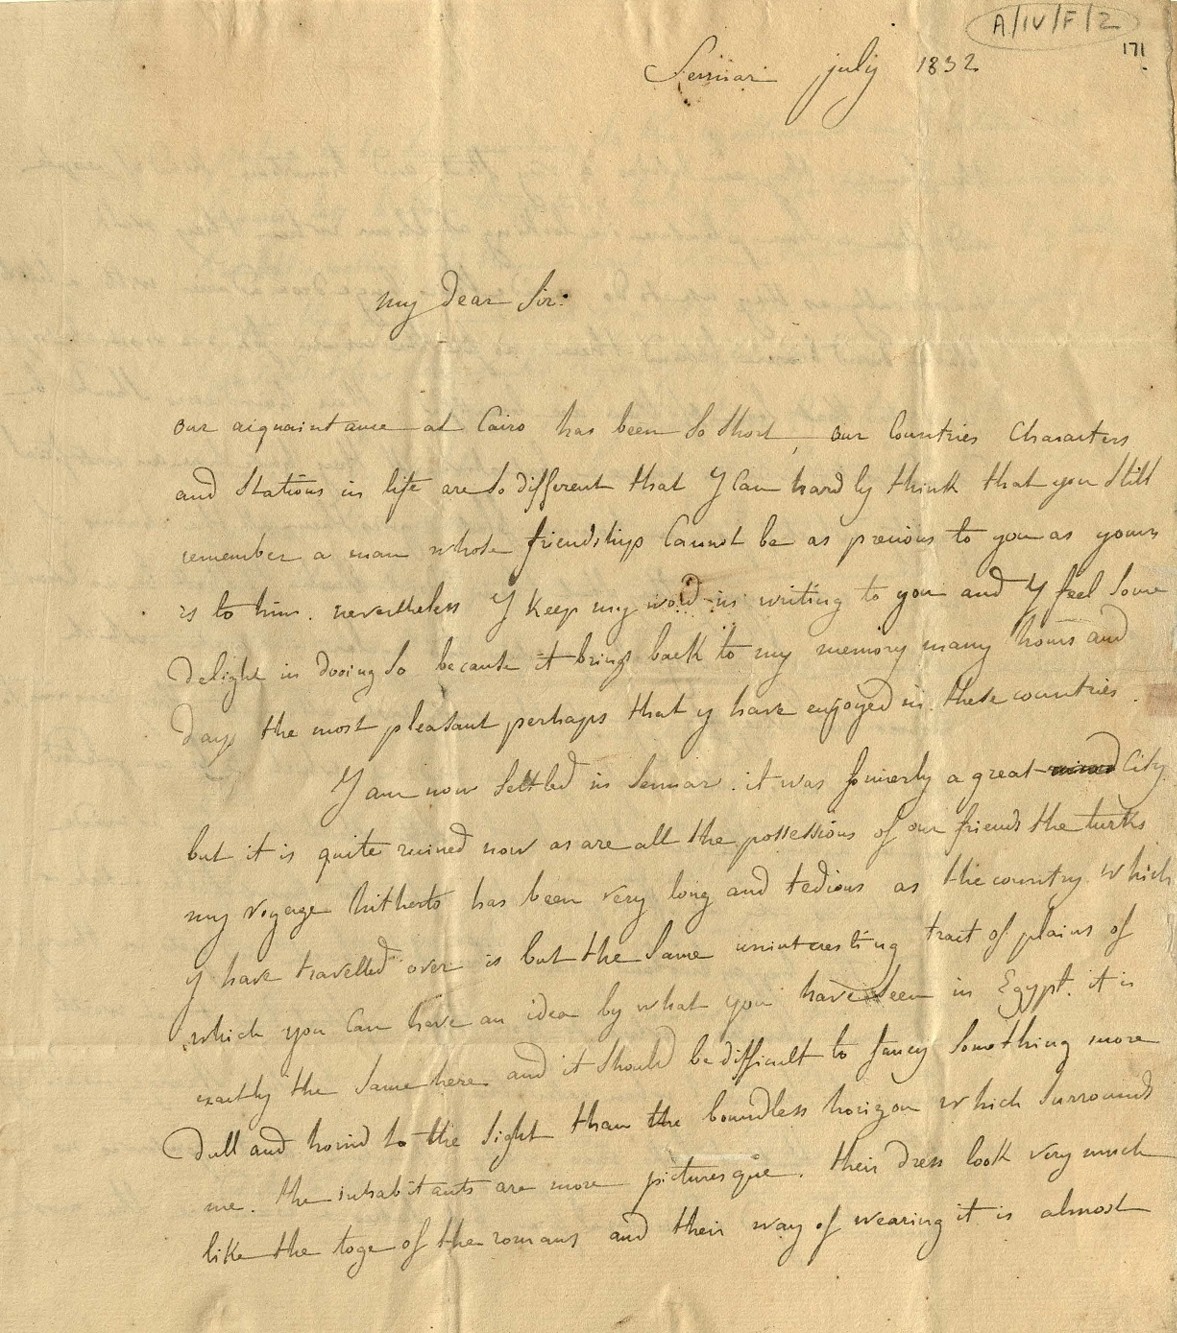 A/IV/F/2
171
Sennar july 1832
my dear Sir.
our aiquaintance at Cairo has been so short, our Countries Characters
and Stations in life are so different that y Can hardly think that you still
remember a man whose friendship Cannot be as precious to you as yours
is to him. nevertheless Y keep my word in writing to you and Y feel some
delight in dooing so because it brings back to my memory many hours and
days the most pleasant perhaps that y have enjoyed in these countries.
Y am now settled in Sennar. it was formerly a great ruined City
but it is quite ruined now as are all the possessions of our friends the turks
my voyage hitherto has been very long and tedious as the country which
y have travelled over is but the same uninteresting tract of plains of
which you Can have an idea by what you have seen in Egypt. it is
exactly the same here and it should be difficult to fancy something more
dull and horrid to the sight than the boundless horizon which surrounds
me. the inhabitants are more picturesque. their dress look very much
like the toge of the romans and their way of wearing it is almost